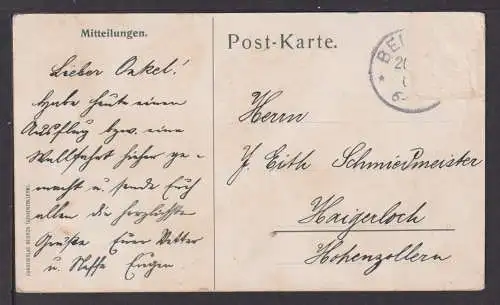 Mitteilungen.
Post-Karte.
BE
20
6-
Lieber Onkel!
Habe heute einen
Ausflug bzw. eine
Wallfahrt hieher ge-
macht u. sende Euch
allen die herzlichste
Grüße Euer Vetter
u. Neffe Eugen
Herrn
J. Eith Schmiedmeister
Haigerloch
Hohenzollern